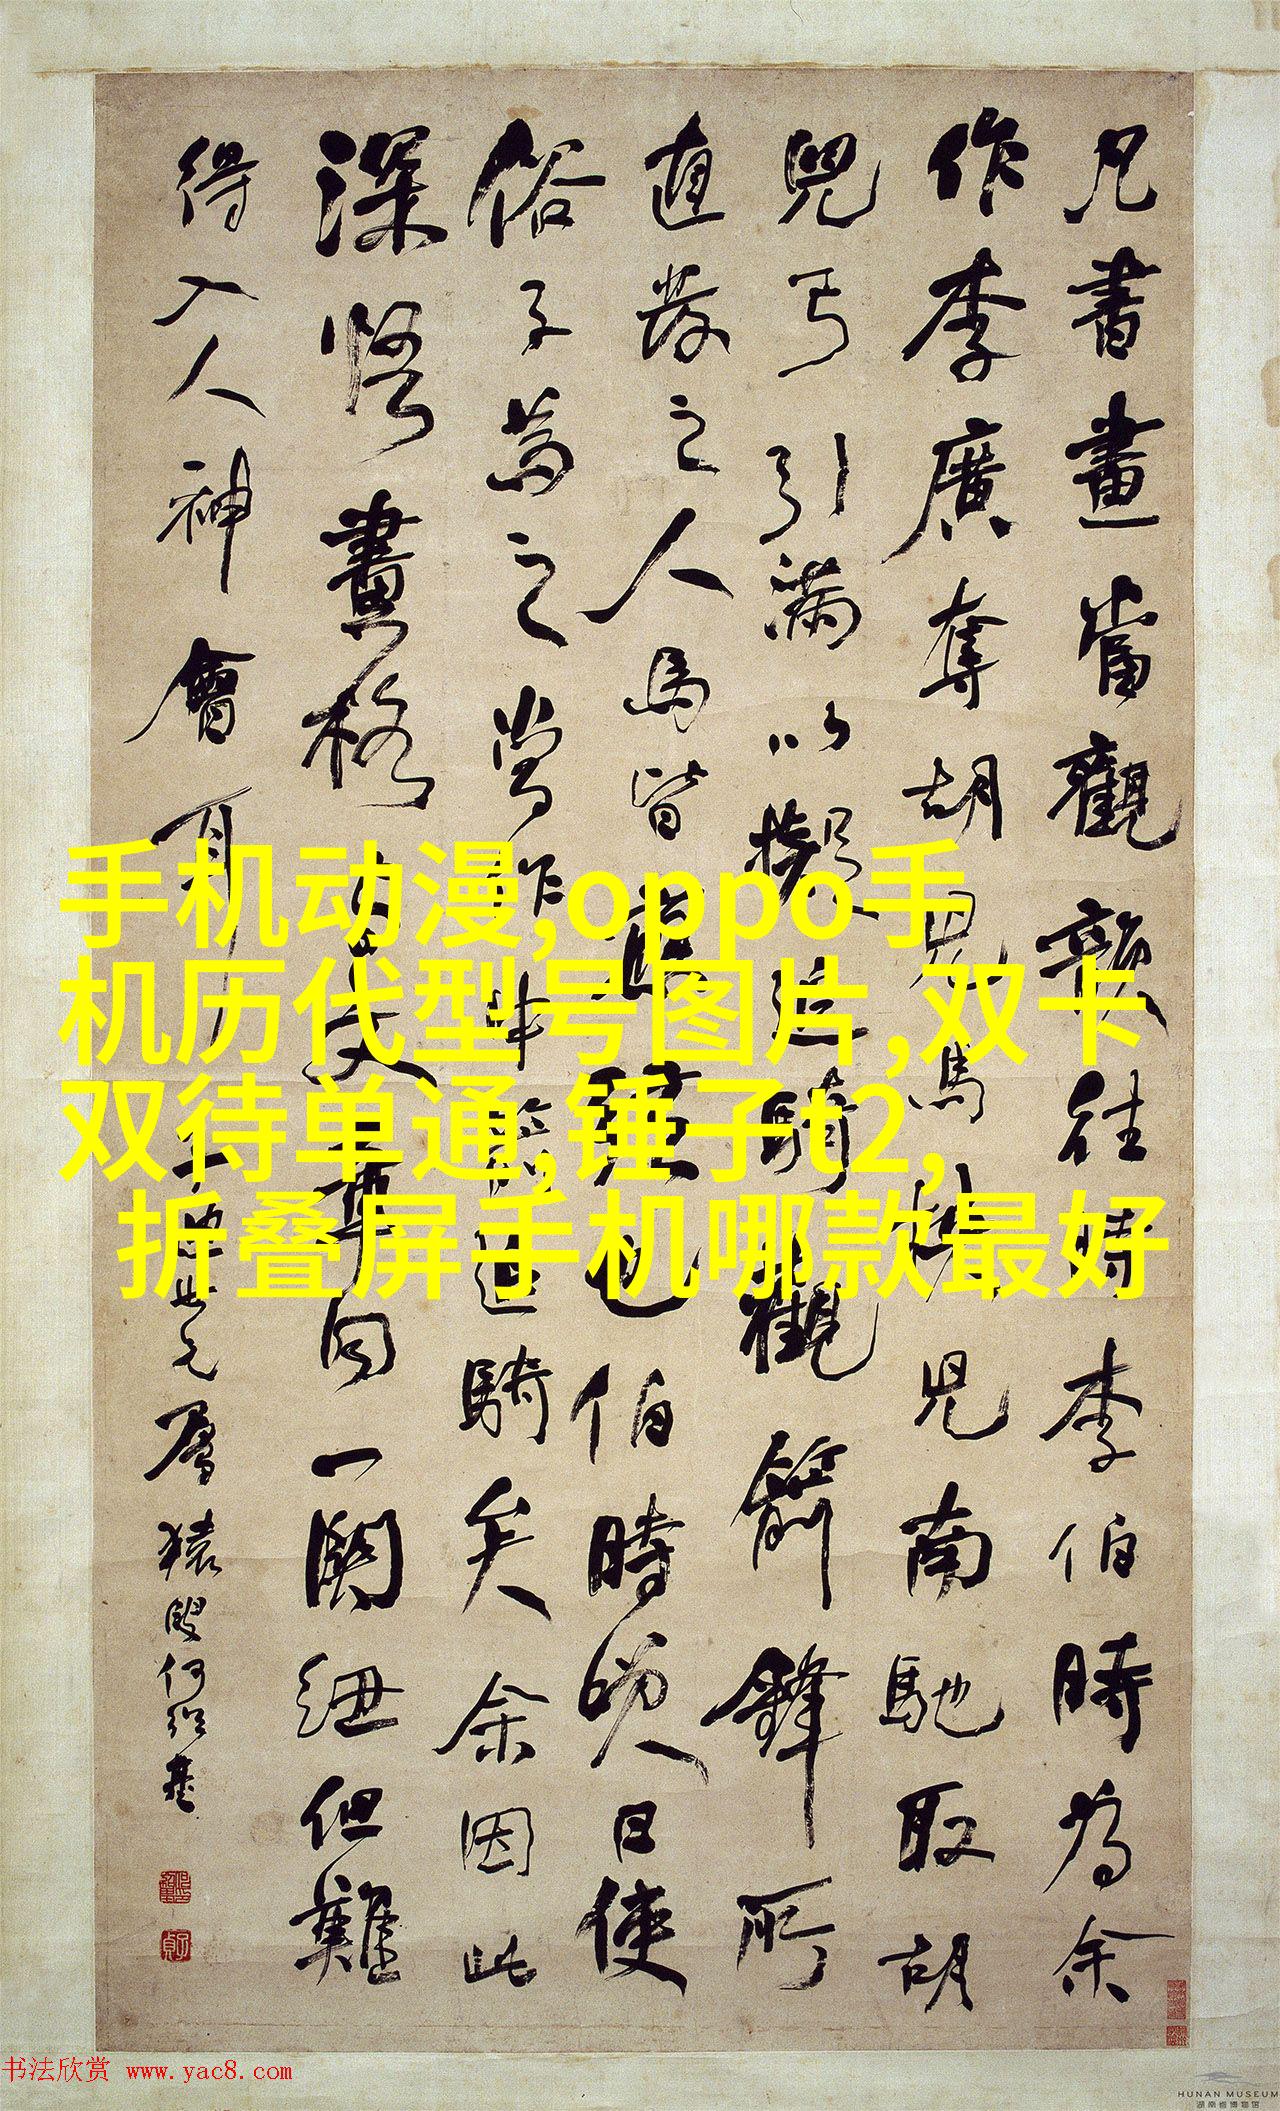 凡書畫當觀韻往時李伯時為余
作李廣奪胡兒馬挾兒南馳取胡
兒弓引滿以擬追騎觀箭鋒所
直發之人馬皆應弦也伯時笑曰使
俗子為之當作中箭追騎矣余因此
深悟畫格與文章同一關紐但難
得入人神會耳
世元屬 猿叟何紹基
手机动漫,oppo手
机历代型号图片,双卡
双待单通,锤子t2,
折叠屏手机哪款最好
书法欣赏 www.yac8.com
HUNAN MUSEUM
湖南省博物馆